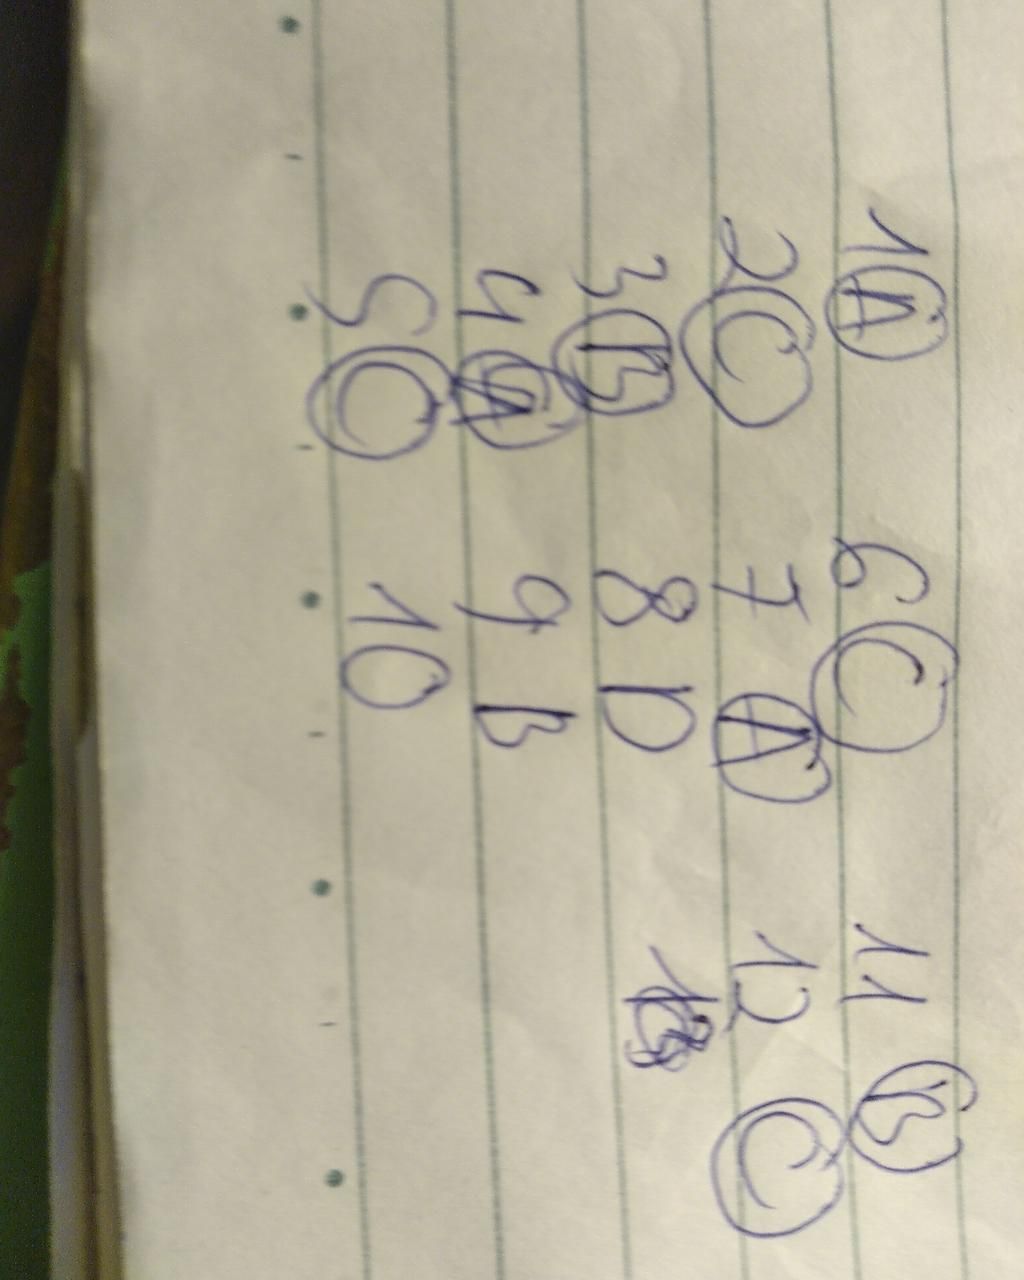 1 A 6 C 11 B
2 C 7 A 12 C
3 B 8 D
4 A 9 B
5 C 10